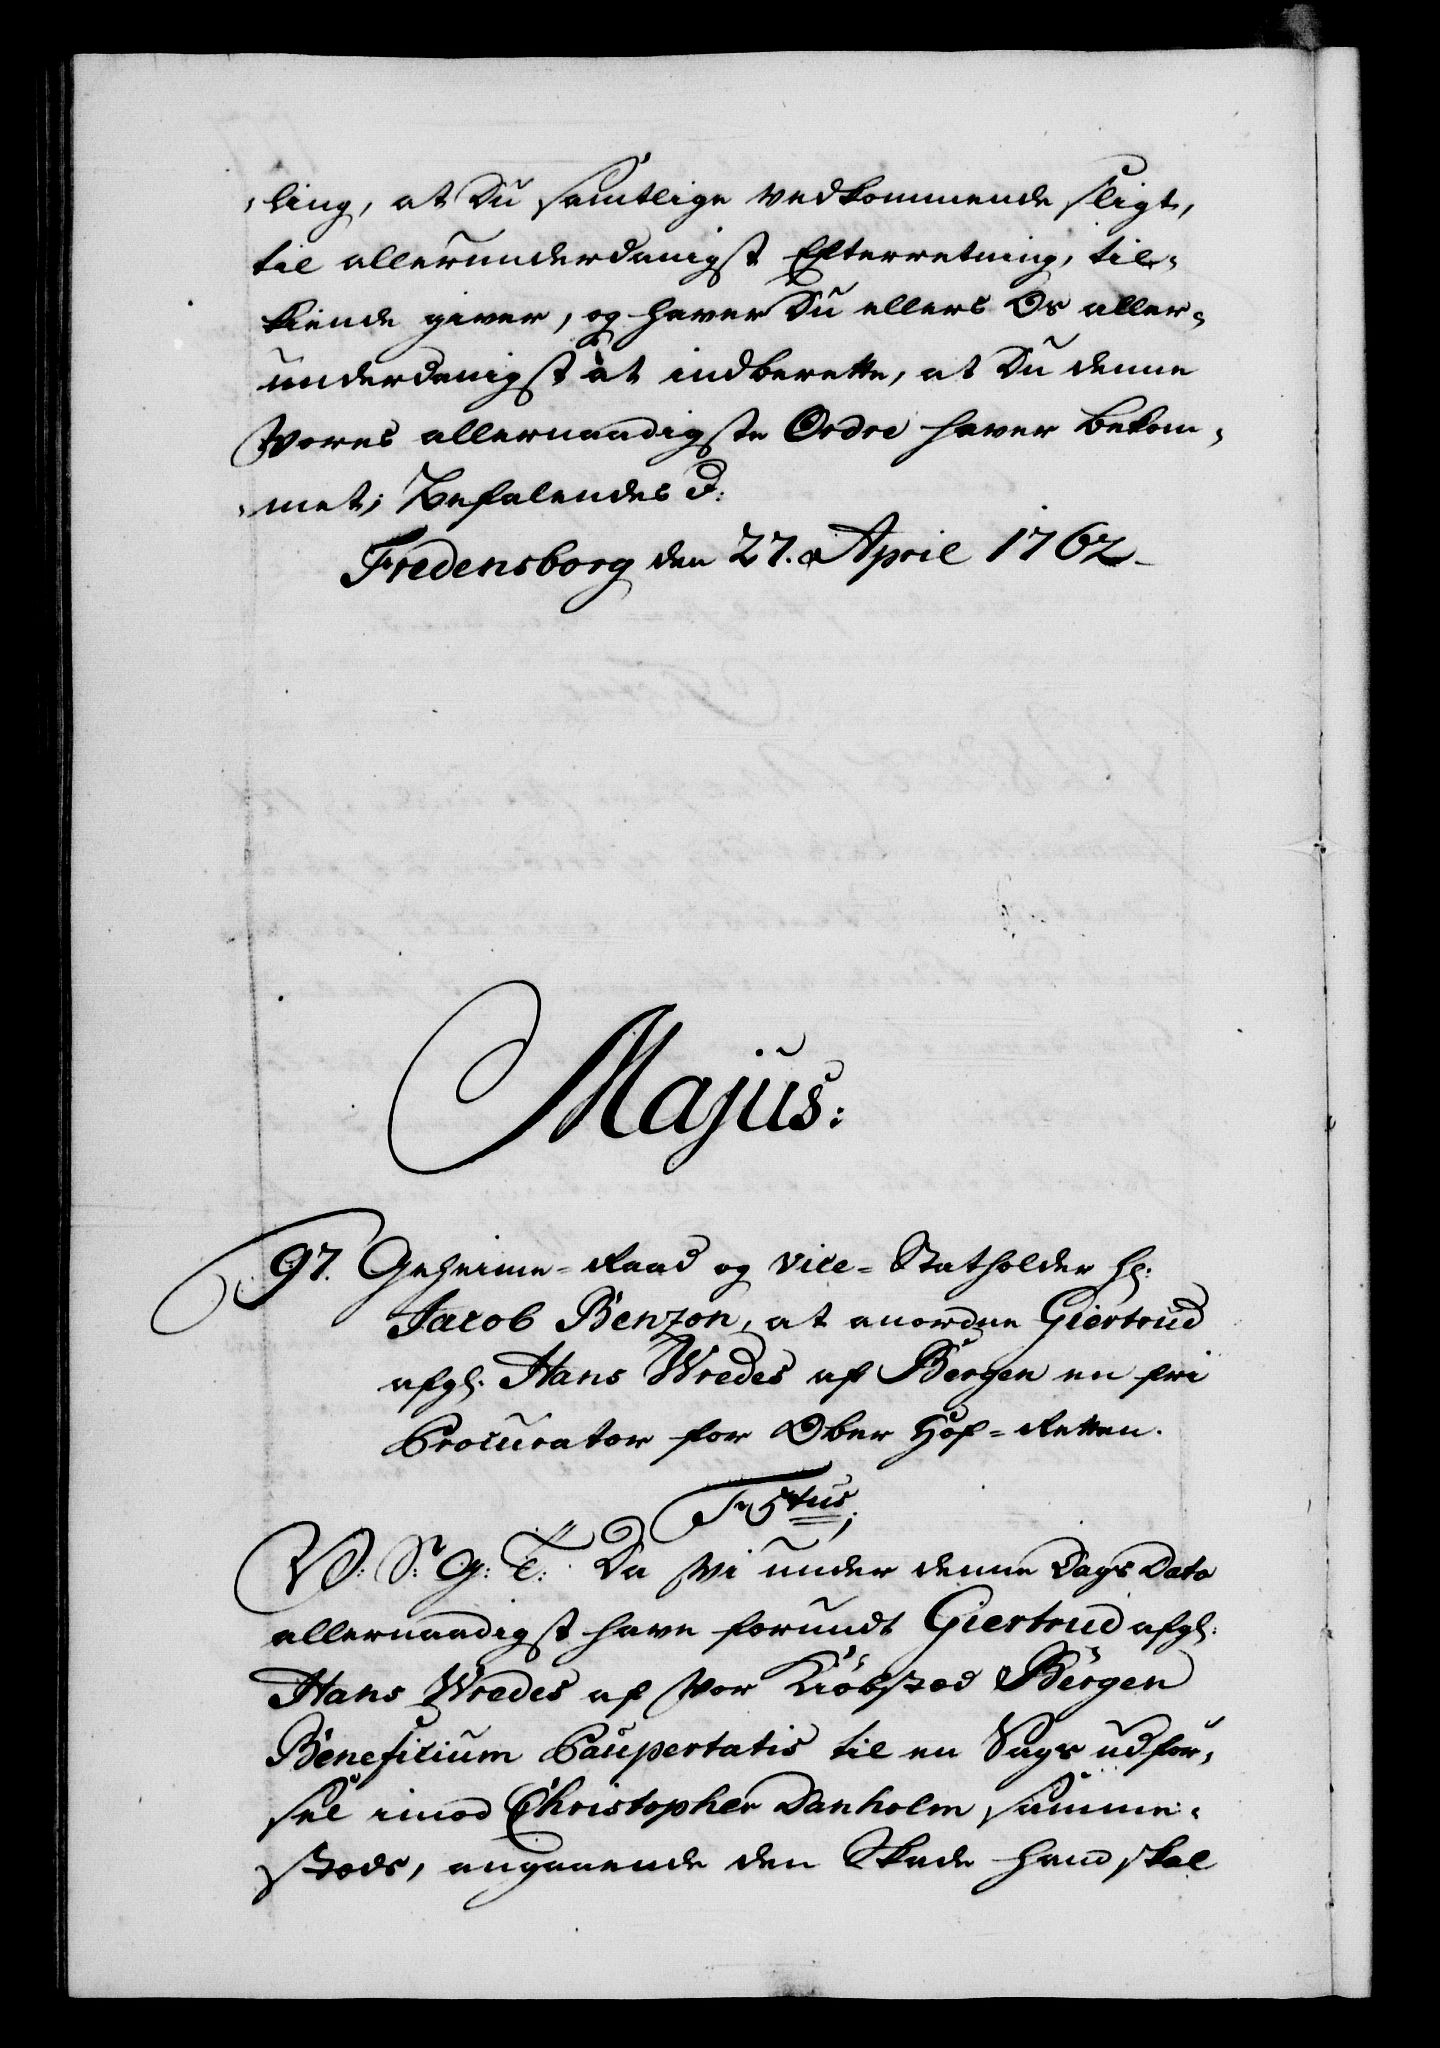 ling, at Du samtlige vedkommende sligt,
til allerunderdanigst Efterretning, til-
kiende giver, og haver Du ellers Os aller-
underdanigst at indberette, at Du denne
Vores allernaadigste Ordre haver bekom-
met; Befalendes d:
Fredensborg den 27. April 1762
Majus:
97. Geheime-Raad og Vice-Statholder Hr:
Jacob Benzon, at anordne Giertrud
afgl. Hans Wredes af Bergen en fri
Procurator for Ober Hof-Retten.
Fr 5tus;
V: S: G: T: Da Vi under denne Dags Dato
allernaadigst have forundt Giertrud afgl:
Hans Wredes af Vor Kiöbstæd Bergen
Beneficium Paupertatis til en Sags udför-
sel imod Christopher Danholm samme-
stæds, angaaende den Skade hand skal